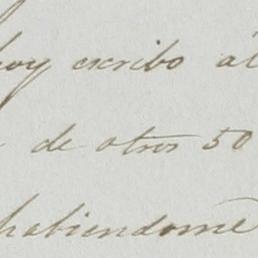 hoy escribo al
de otros 50
habiendome